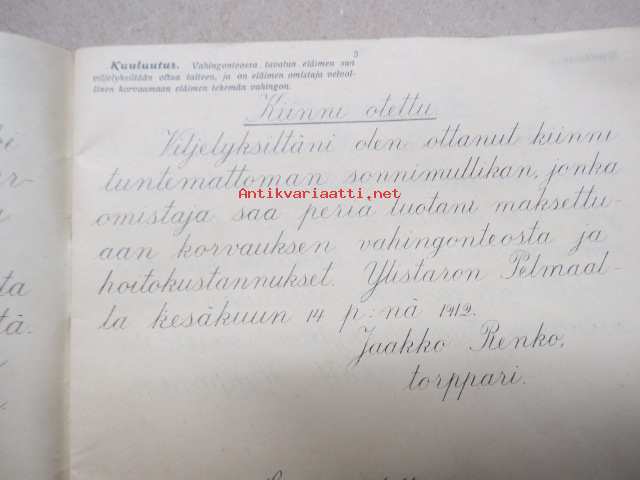 3
Kuulutus. Vahingonteosta tavatun eläimen saa
viljelyksiltään ottaa talteen, ja on eläimen omistaja velvol-
linen korvaamaan eläimen tekemän vahingon.
Kiinni otettu
Viljelyksiltäni olen ottanut kiinni
tuntemattoman sonnimullikan, jonka
Antikvariaatti.net
omistaja saa periä luotani maksettu-
aan korvauksen vahingonteosta ja
hoitokustannukset. Ylistaron Pelmaal-
ta kesäkuun 14 p:nä 1912.
Jaakko Renko,
torppari.